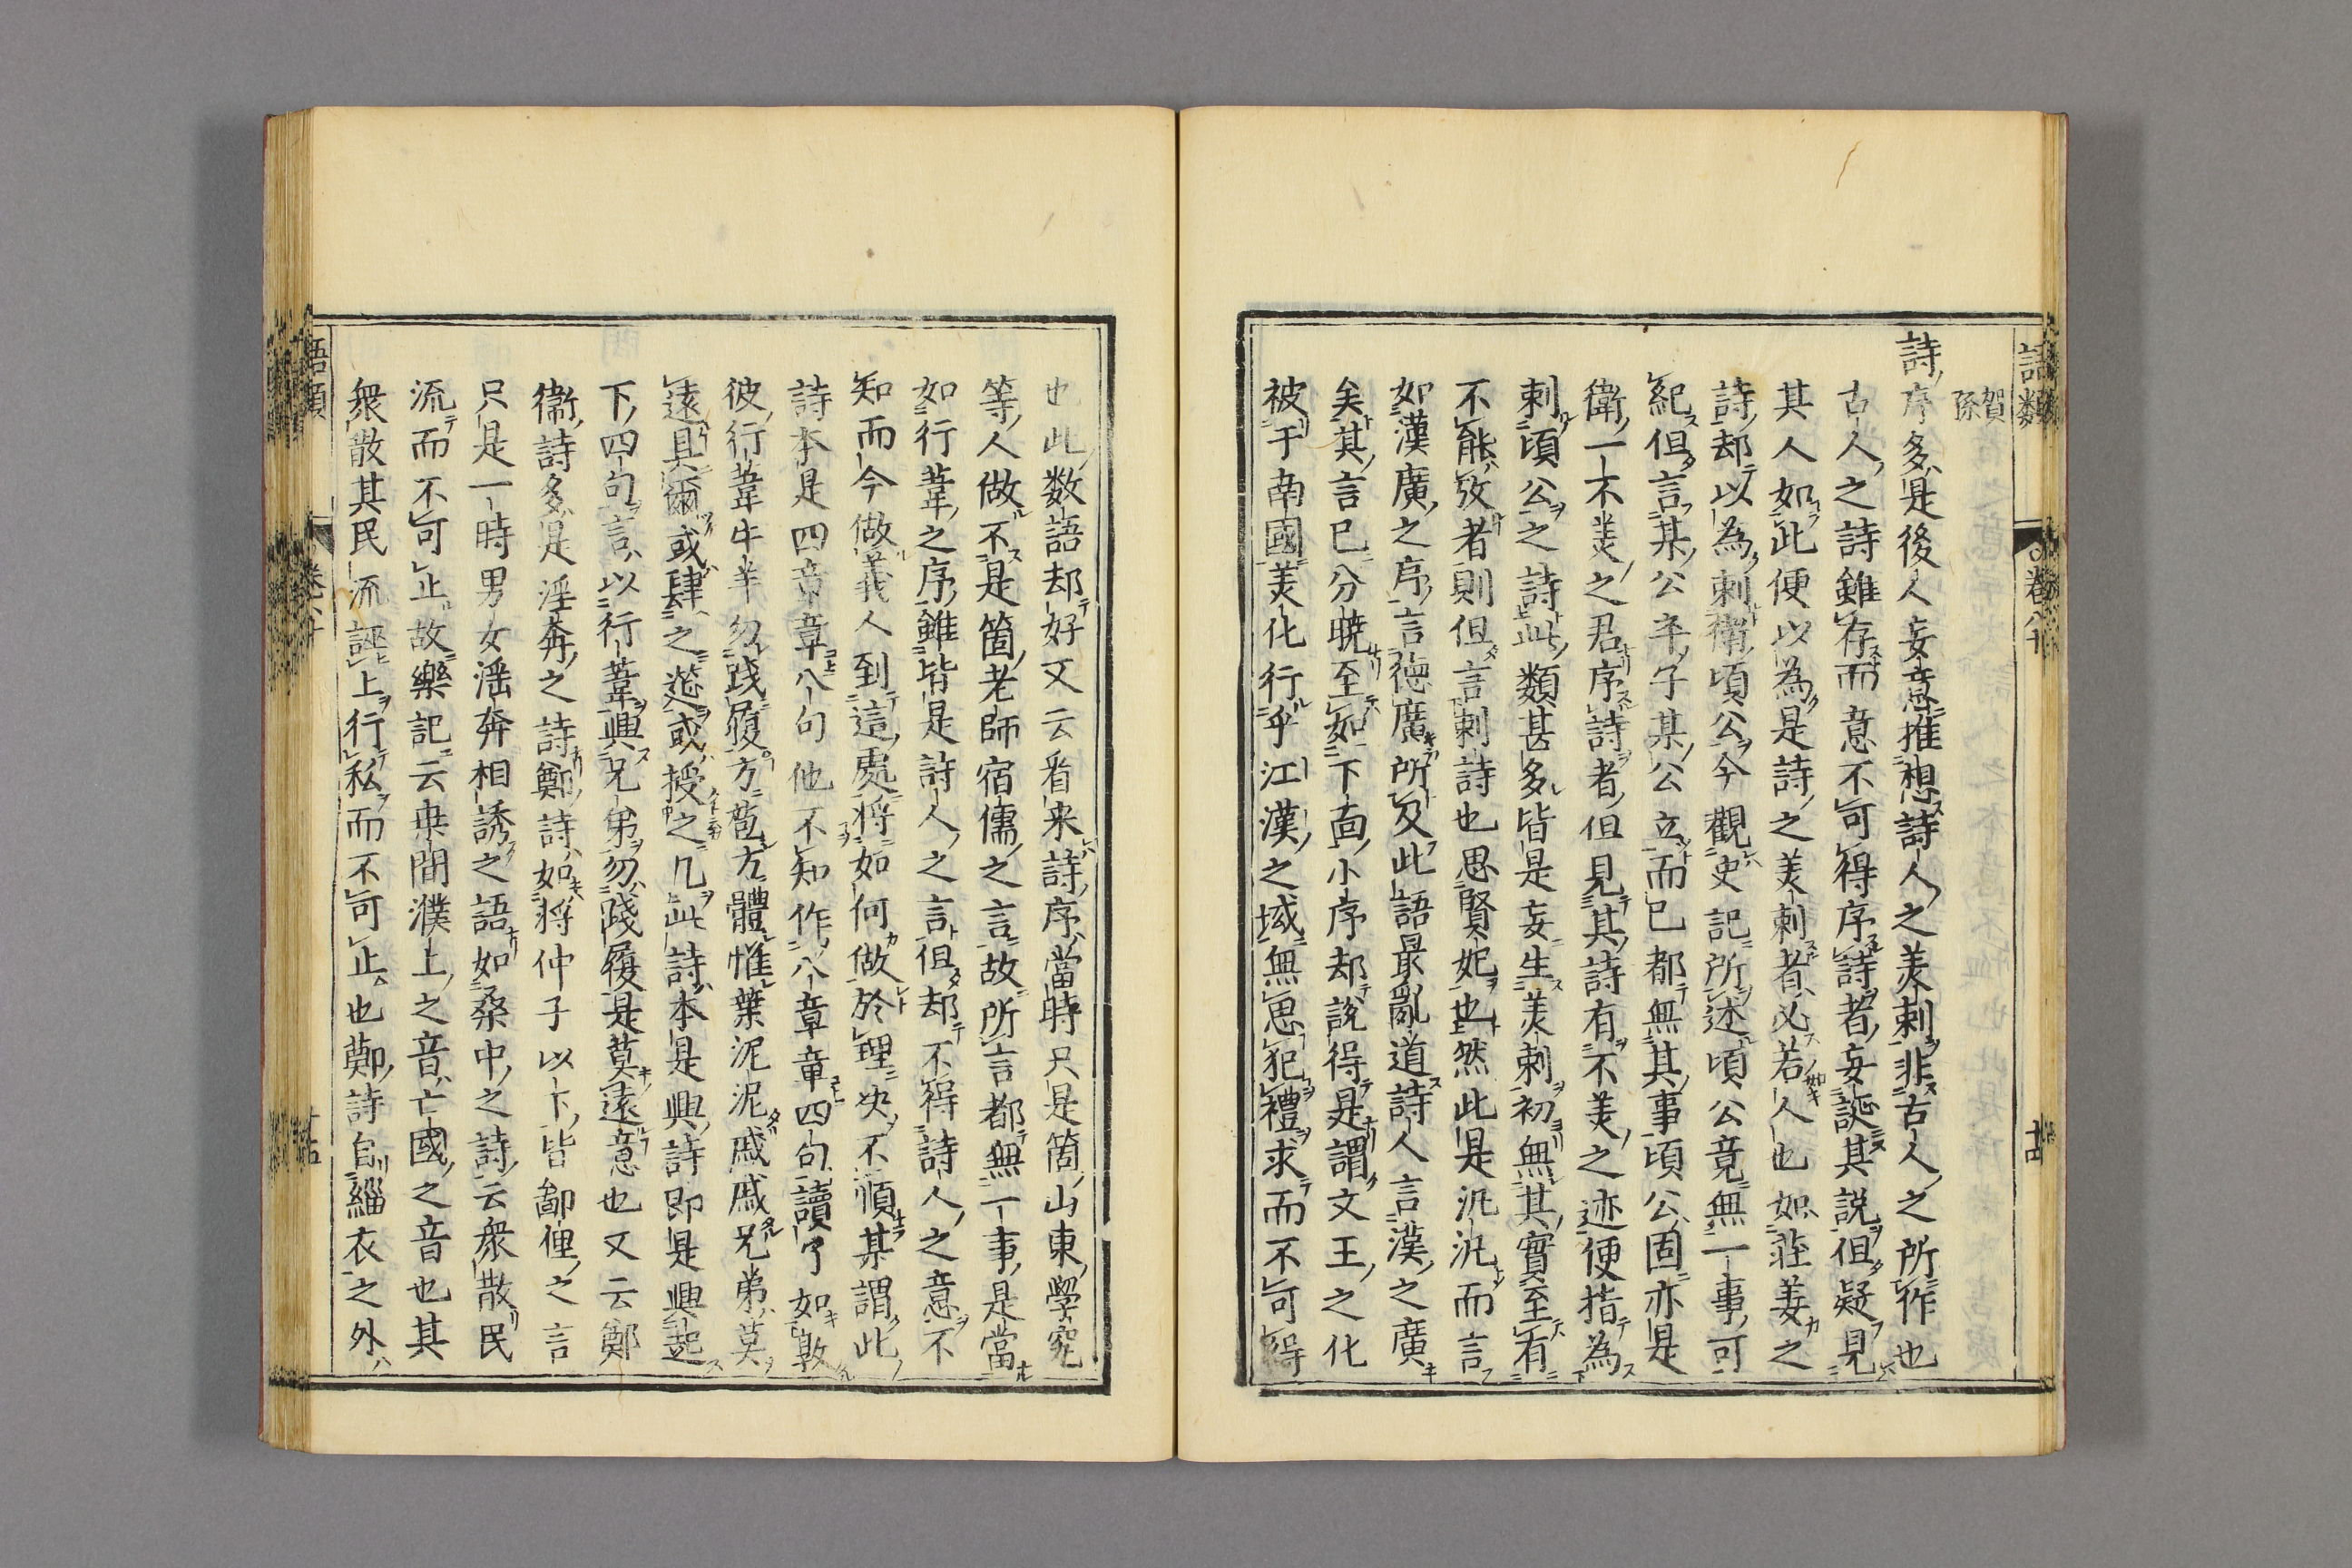 語類 卷八十 十四
賀孫
詩序多是後人妄意推想詩人之美刺非古人之所作也
古人之詩雖存而意不可得序詩者妄誕其說但疑見
其人如此便以為是詩之美刺者必若人也如莊姜之
詩却以為刺衛頃公今觀史記所述頃公竟無一事可
紀但言某公卒子某公立而已都無其事頃公固亦是
衛一不美之君序詩者但見其詩有不美之迹便指為
刺頃公之詩此類甚多皆是妄生美刺初無其實至有
不能攷者則但言刺詩也思賢妃也然此是汎汎而言
如漢廣之序言德廣所及此語最亂道詩人言漢之廣
矣其言已分曉至如下面小序却說得是謂文王之化
被于南國美化行乎江漢之域無思犯禮求而不可得
也此数語却好又云看来詩序當時只是箇山東學究
等人做不是箇老師宿儒之言故所言都無一事是當
如行葦之序雖皆是詩人之言但却不得詩人之意不
知而今做義人到這處將如何做於理決不順某謂此
詩本是四章章八句他不知作八章章四句讀了如敦
彼行葦牛羊勿踐履方苞方體惟葉泥泥戚戚兄弟莫
遠具爾或肆之筵或授之几此詩本是興詩即是興起
下四句言以行葦興兄弟勿踐履是莫遠意也又云鄭
衛詩多是淫奔之詩鄭詩如將仲子以下皆鄙俚之言
只是一時男女淫奔相誘之語如桑中之詩云衆散民
流而不可止故樂記云桒間濮上之音亡國之音也其
衆散其民流誣上行私而不可止也鄭詩自緇衣之外
語類 卷八十